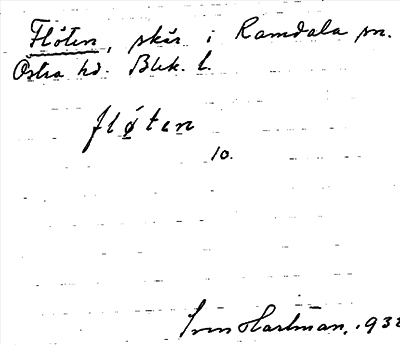 Flöten, skär i Ramdala sn.
Östra hd. Blek. l.
flø̣ten
10.
Sven Hartman, 193